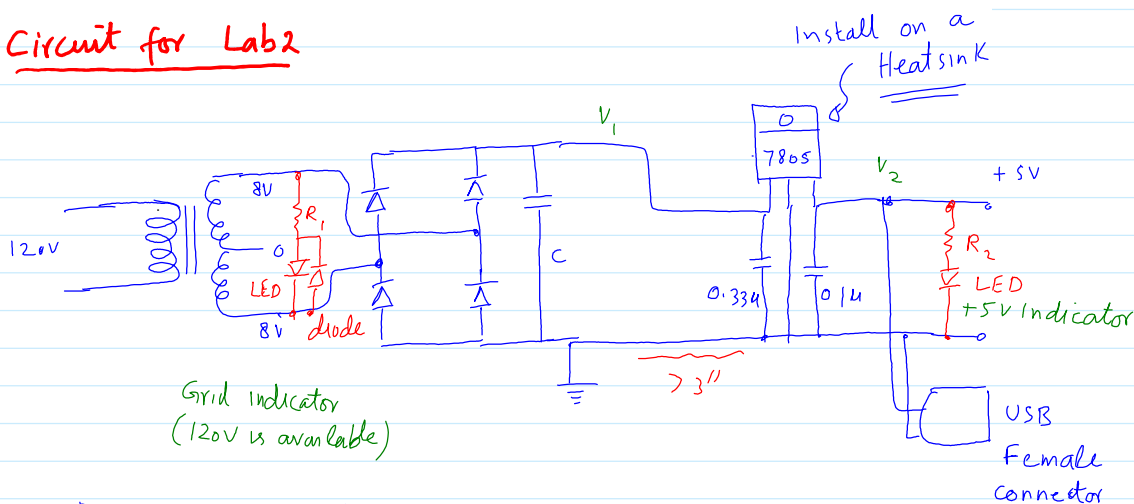 Circuit for Lab2
Install on a
Heatsink
V1
O
7805
V2
+5V
8V
R1
120V
0
LED
C
0.33µ
0.1µ
R2
LED
+5V Indicator
8V
diode
>3"
Grid indicator
(120V is available)
USB
Female
connector